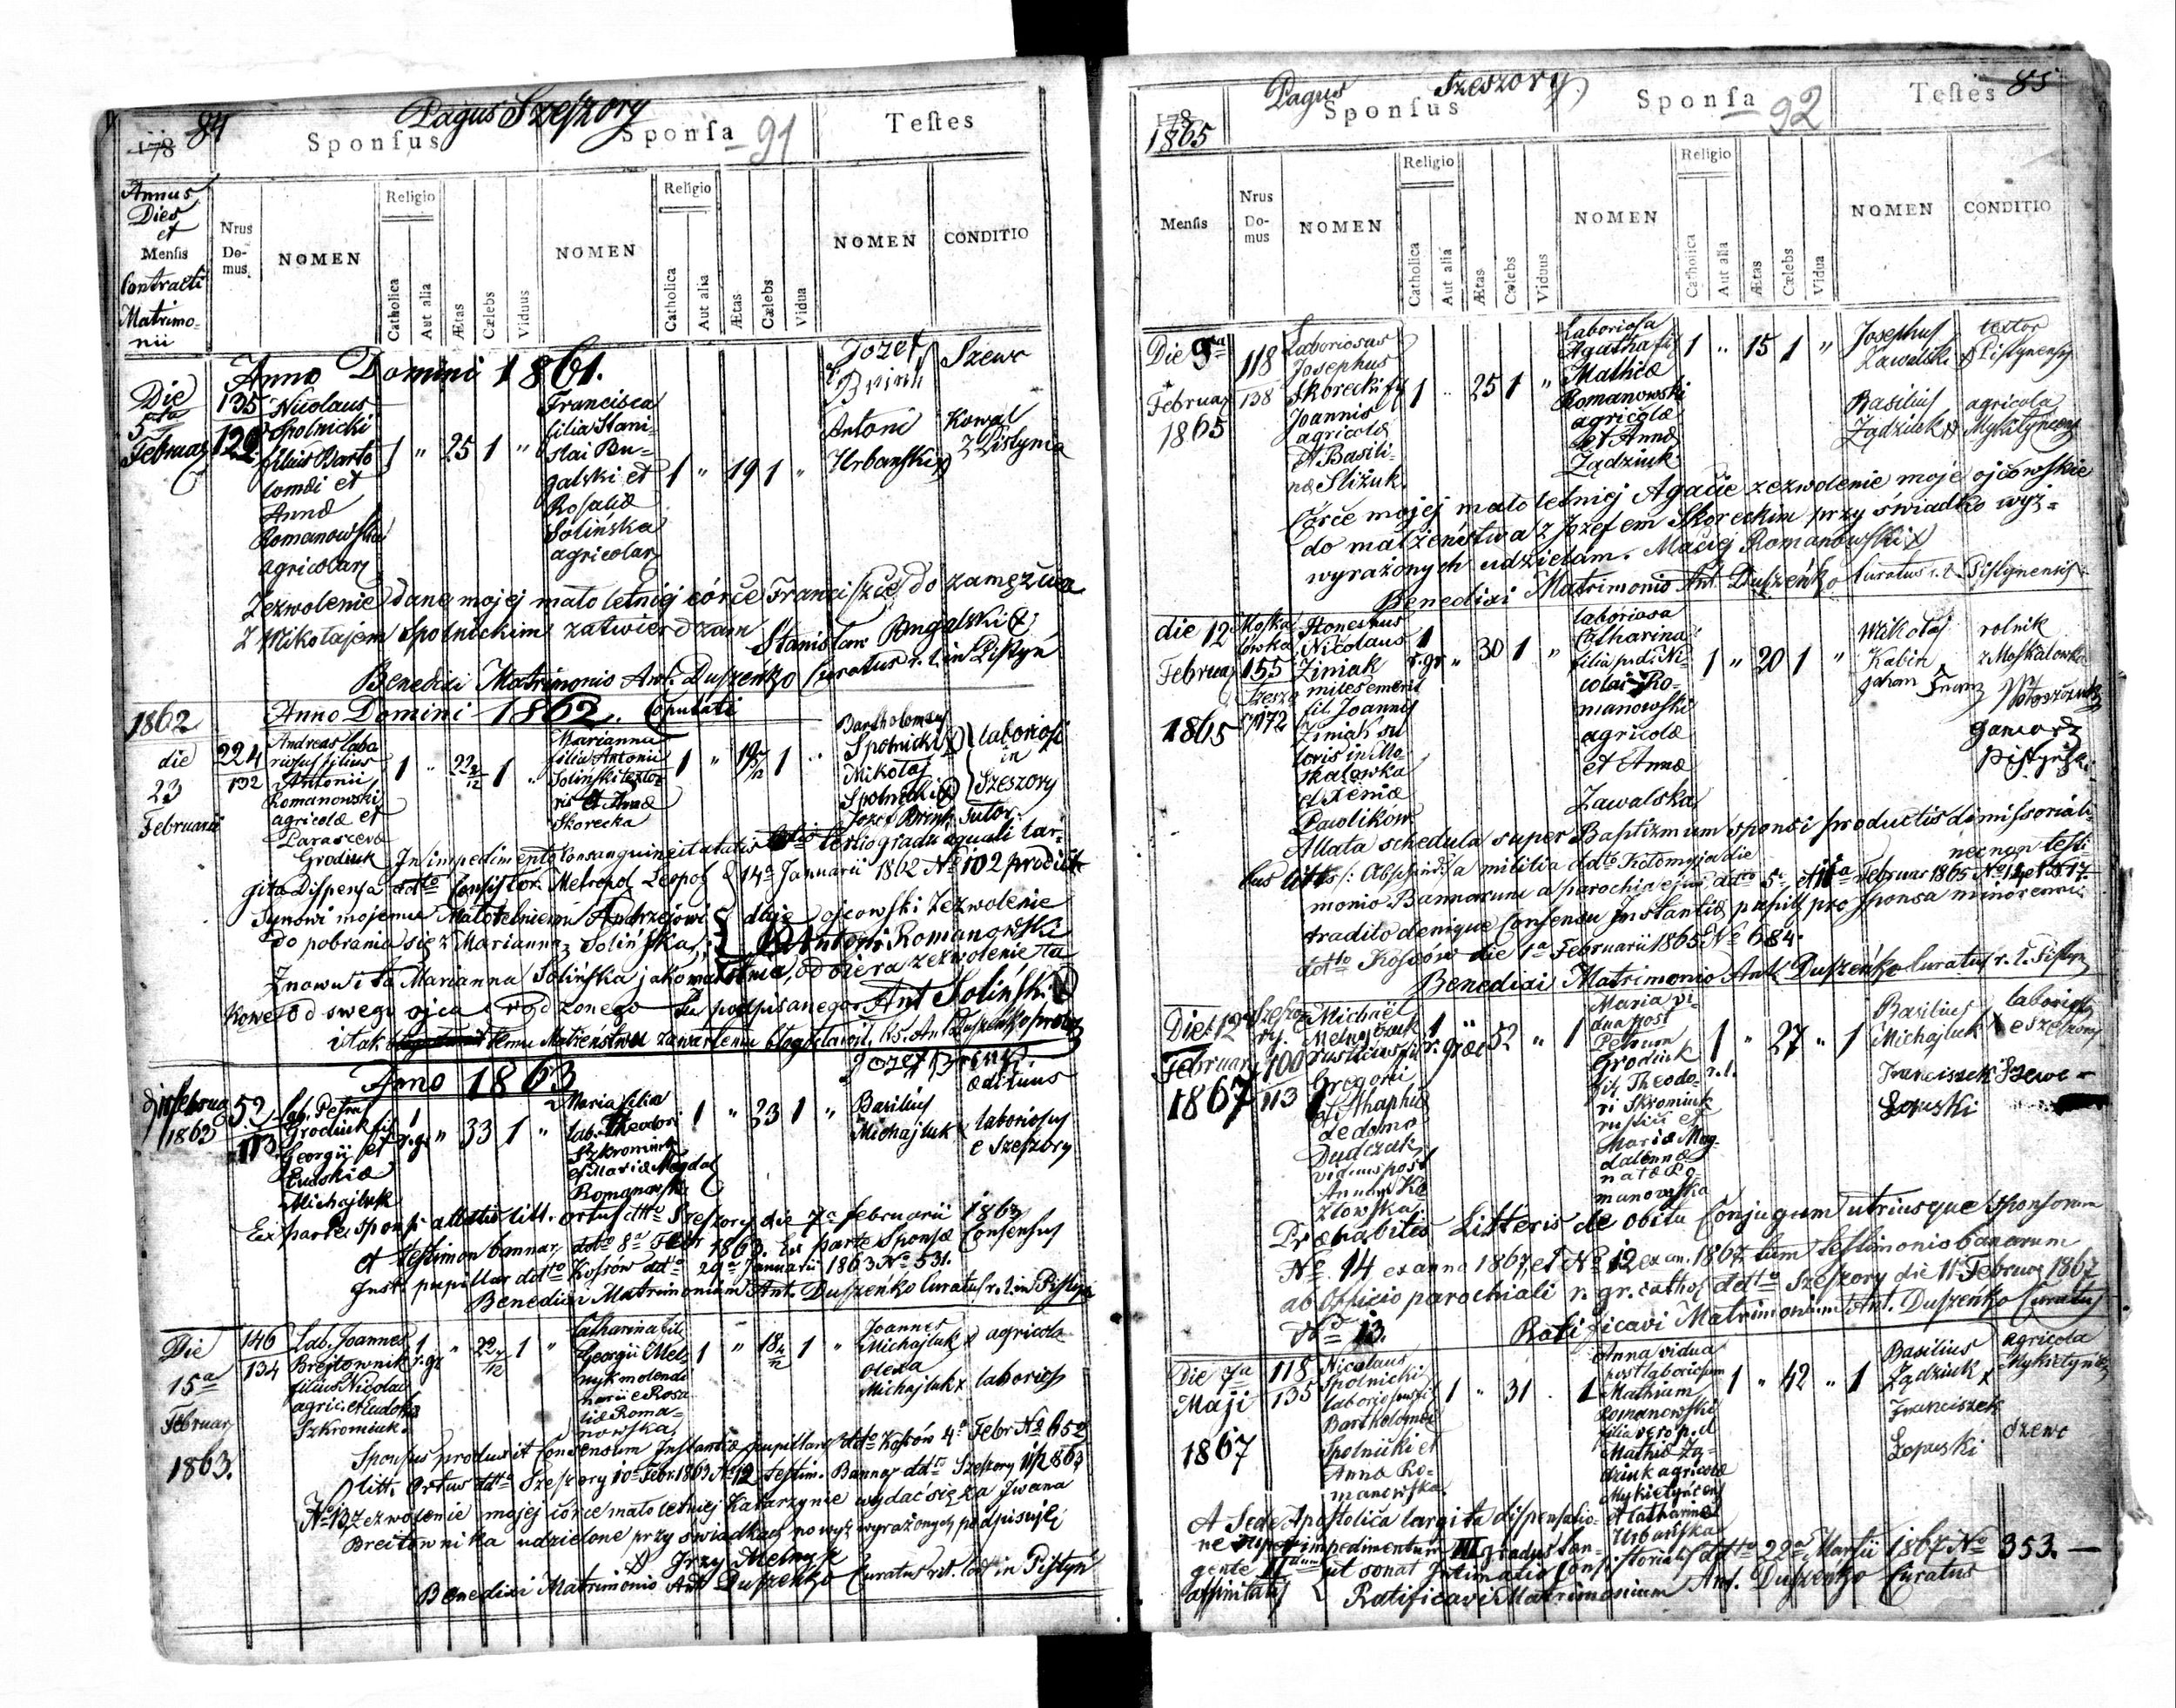 84
Pagus Szeszory
178
Sponsus
Sponsa
91
Testes
Annus
Dies
et
Mensis
Contracti
Matrimo-
nii
Nrus
Do-
mus
NOMEN
Religio
Catholica
Aut alia
Ætas
Cælebs
Viduus
NOMEN
Religio
Catholica
Aut alia
Ætas
Cælebs
Vidua
NOMEN
CONDITIO
Anno Domini 1861.
Die
5ta
Februar
135
120
Nicolaus
Spolnicki
filius Barto
lomæi et
Annæ
Romanowska
agricolar
1 " 25 1 "
Francisca
filia Stani-
slai Bu-
galski et
Rosaliæ
Solińska
agricolar
1 " 19 1 "
Jozef
Szewc
Antoni
Urbański
Kowal
z Pistynia
Zezwolenie dane mojej małoletniej córce Franciszce do zamęźcia
z Mikołajem Spolnickim zatwierdzam
Stanisław Bugalski
Benedixi Matrimonio Ant. Duszeńko Curatus r. l. in Pistyń
1862
Anno Domini 1862. Copulati
die
23
Februarii
224
132
Andreas labo
riosus filius
Antonii
Romanowski
agricolæ et
Parascevæ
Grodiuk
1 " 22 1 "
Marianna
filia Antonii
Soliński texto-
ris et Annæ
Skorecka
1 " 1
Bartholomeus
Spolnicki
Nikołaj
Spolnicki
laboriosi
in
Szeszory
Sutor
In impedimento Consanguineitatis tertio gradu æquali lar-
gita Dispensa ddtto Consistor. Metropol. Leopol 14a Januarii 1862 No 102
Synowi mojemu Małoletniemu Andrzejowi daję ojcowski Zezwolenie
do pobrania się z Marianną Solińską
Antoni Romanowski
Znowu i ta Marianna Solińska jako małoletnia, odbiera zezwolenie ta
kowe od swego ojca rodzonego tu podpisanego Ant Soliński
i tak temu Małżeństwu zawartemu błogosławił. Ks. Ant Duszeńko
Anno 1863
Februar
1863
52
113
Lab. Petrus
Grodiuk fil
Georgii et
Eudokiæ
Michajluk
1
r.g. " 33 1 "
Maria filia
lab. Theodor
Szkromiuk
et Mariæ Magdal
Romanowska
1 " 23 1 "
ædituus
Basilius
Michajluk
laboriosus
e Szeszory
Ex parte Sponsi allatis litt. ortus ddtto Szeszory die 7a februarii 1863
et testimon bannar ddto 8a Febr 1863. Ex parte Sponsæ Consensus
Inst. pupillar ddtto Kossów ddtto 29a Januarii 1863 No 531.
Benedixi Matrimonium Ant. Duszeńko Curatus r. l. in Pistyń
Die
15a
Februar
1863.
146
134
Lab. Joannes
Breitownik
filius Nicolai
agric. et Eudok
Szkromiuk.
1
r.gr " 22 1 "
Catharina fil
Georgii Mel-
nyk molendi
narii e Rosa
liæ Roma-
nowska
1 " 18 1 "
Joannes
Michajluk
agricola
Olexa
Michajluk
laborios
Sponsus produxit Consensum Instantiæ pupillar ddtto Kossów 4a Febr No 652
litt. Ortus ddtto Szeszory 10a Febr. 1863 No 12 testim. Bannor ddtto Szeszory 11/2 863
No 13, Zezwolenie mojej córce małoletniej Katarzynie wydać się za Iwana
Breitownika udzielone przy świadkach powyż wyrażonych podpisuję
Jrzy Melnyk
Benedixi Matrimonio Ant Duszeńko Curatus rit. lat in Pistyń
85
Pagus Szeszory
178
1865
Sponsus
Sponsa
92
Testes
Mensis
Nrus
Do-
mus
NOMEN
Religio
Catholica
Aut alia
Ætas
Cælebs
Viduus
NOMEN
Religio
Catholica
Aut alia
Ætas
Cælebs
Vidua
NOMEN
CONDITIO
Die 9a
Februar
1865
118
138
Laboriosus
Josephus
Skorecki fil
Joannis
agricolæ
et Basili-
næ Sliżuk.
1 " 25 1 "
Laboriosa
Agatha fil
Mathiæ
Romanowski
agricolæ
et Annæ
Ządziuk
1 " 15 1 "
Josephus
Zawalski
textor
Pistynensis
Basilius
Ządziuk
agricola
Mykityńcen
Córce mojej małoletniej Agacie zezwolenie moje ojcowskie
do małżeństwa z Józefem Skoreckim przy świadko wyż-
wyrażonych udzielam. Maciej Romanowski
Benedixi Matrimonio Ant. Duszeńko Curatus r. l. Pistynensis
die 12
Februar
1865
Moska
lówka
155
172
Honestus
Nicolaus
Zimiak
miles emerit
fil. Joannis
Zimiak su
toris in Mo
skalówka
et Xeniæ
Pawlików
1
r.gr " 30 1 "
laboriosa
Catharina
filia p.d. Ni-
colai Ro-
manowski
agricolæ
et Annæ
Zawalska
1 " 20 1 "
Mikołaj
Kabin
rolnik
z Moskalówka
Johan Franz
Pistyński
Allata schedula super Baptizmum sponsi productis dimissoriali
bus litts a militia ddto Kołomyja die nec non testi
monio Bannorum a parochia ejus ddto 5 et 11a Februar 1865 No 12 et No 17
tradito denique Consensu Instantiæ pupill pro sponsa minorenni
ddtto Kossów die 1a Februarii 1865 No 684.
Benedixi Matrimonio Ant. Duszeńko Curatus r. l. Pistyn
Die 12a
Februar
1867
Szeszo
ry.
100
113
Michaël
Melnyczuk
rusticus fil
Gregorii
et Ahaphiæ
de domo
Dudczak
viduus post
Annam Ko
złowska
1
r. græc " 52 " 1
Maria vi-
dua post
Petrum
Grodiuk
fil. Theodo-
ri Skromiuk
rustici et
Mariæ Mag-
dalennæ
natæ Ro-
manowska
1
r.l. " 27 " 1
Basilius
Michajluk
laborios
e Szeszory
Franciszek
Łopuski
Szewc -
Præhabitis Litteris de obitu Conjugum utriusque Sponsorum
No 14 ex anno 1867 et No 12 ex an. 1867. tum Testimonio banorum
ab Officio parochiali r. gr. cathol ddtto Szeszory die 11 Februar 1867
No 13.
Ratificavi Matrimonium Ant. Duszeńko Curatus
Die 7a
Maji
1867
118
135
Nicolaus
Spolnicki
laboriosus fil
Bartholomæi
Spolnicki et
Annæ Ro-
manowska.
1 " 31 . 1
Anna vidua
post laboriosum
Mathium
Romanowski
filia vero p.d.
Mathiæ Zą-
dziuk agricolæ
Mykietyńcens
et Catharinæ
Urbańska
1 " 42 " 1
Basilius
Ządziuk
agricola
Mykietyńce
Franciszek
Łopuski
Szewc
A Sede Apostolica largita dispensatio-
ne super impedimentum III gradus tan-
gente IIdum ut sonat Intimatio Consistorialis ddtto 22a Martii 1867 No 353. —
affinitatis
Ratificavi Matrimonium Ant. Duszeńko Curatus